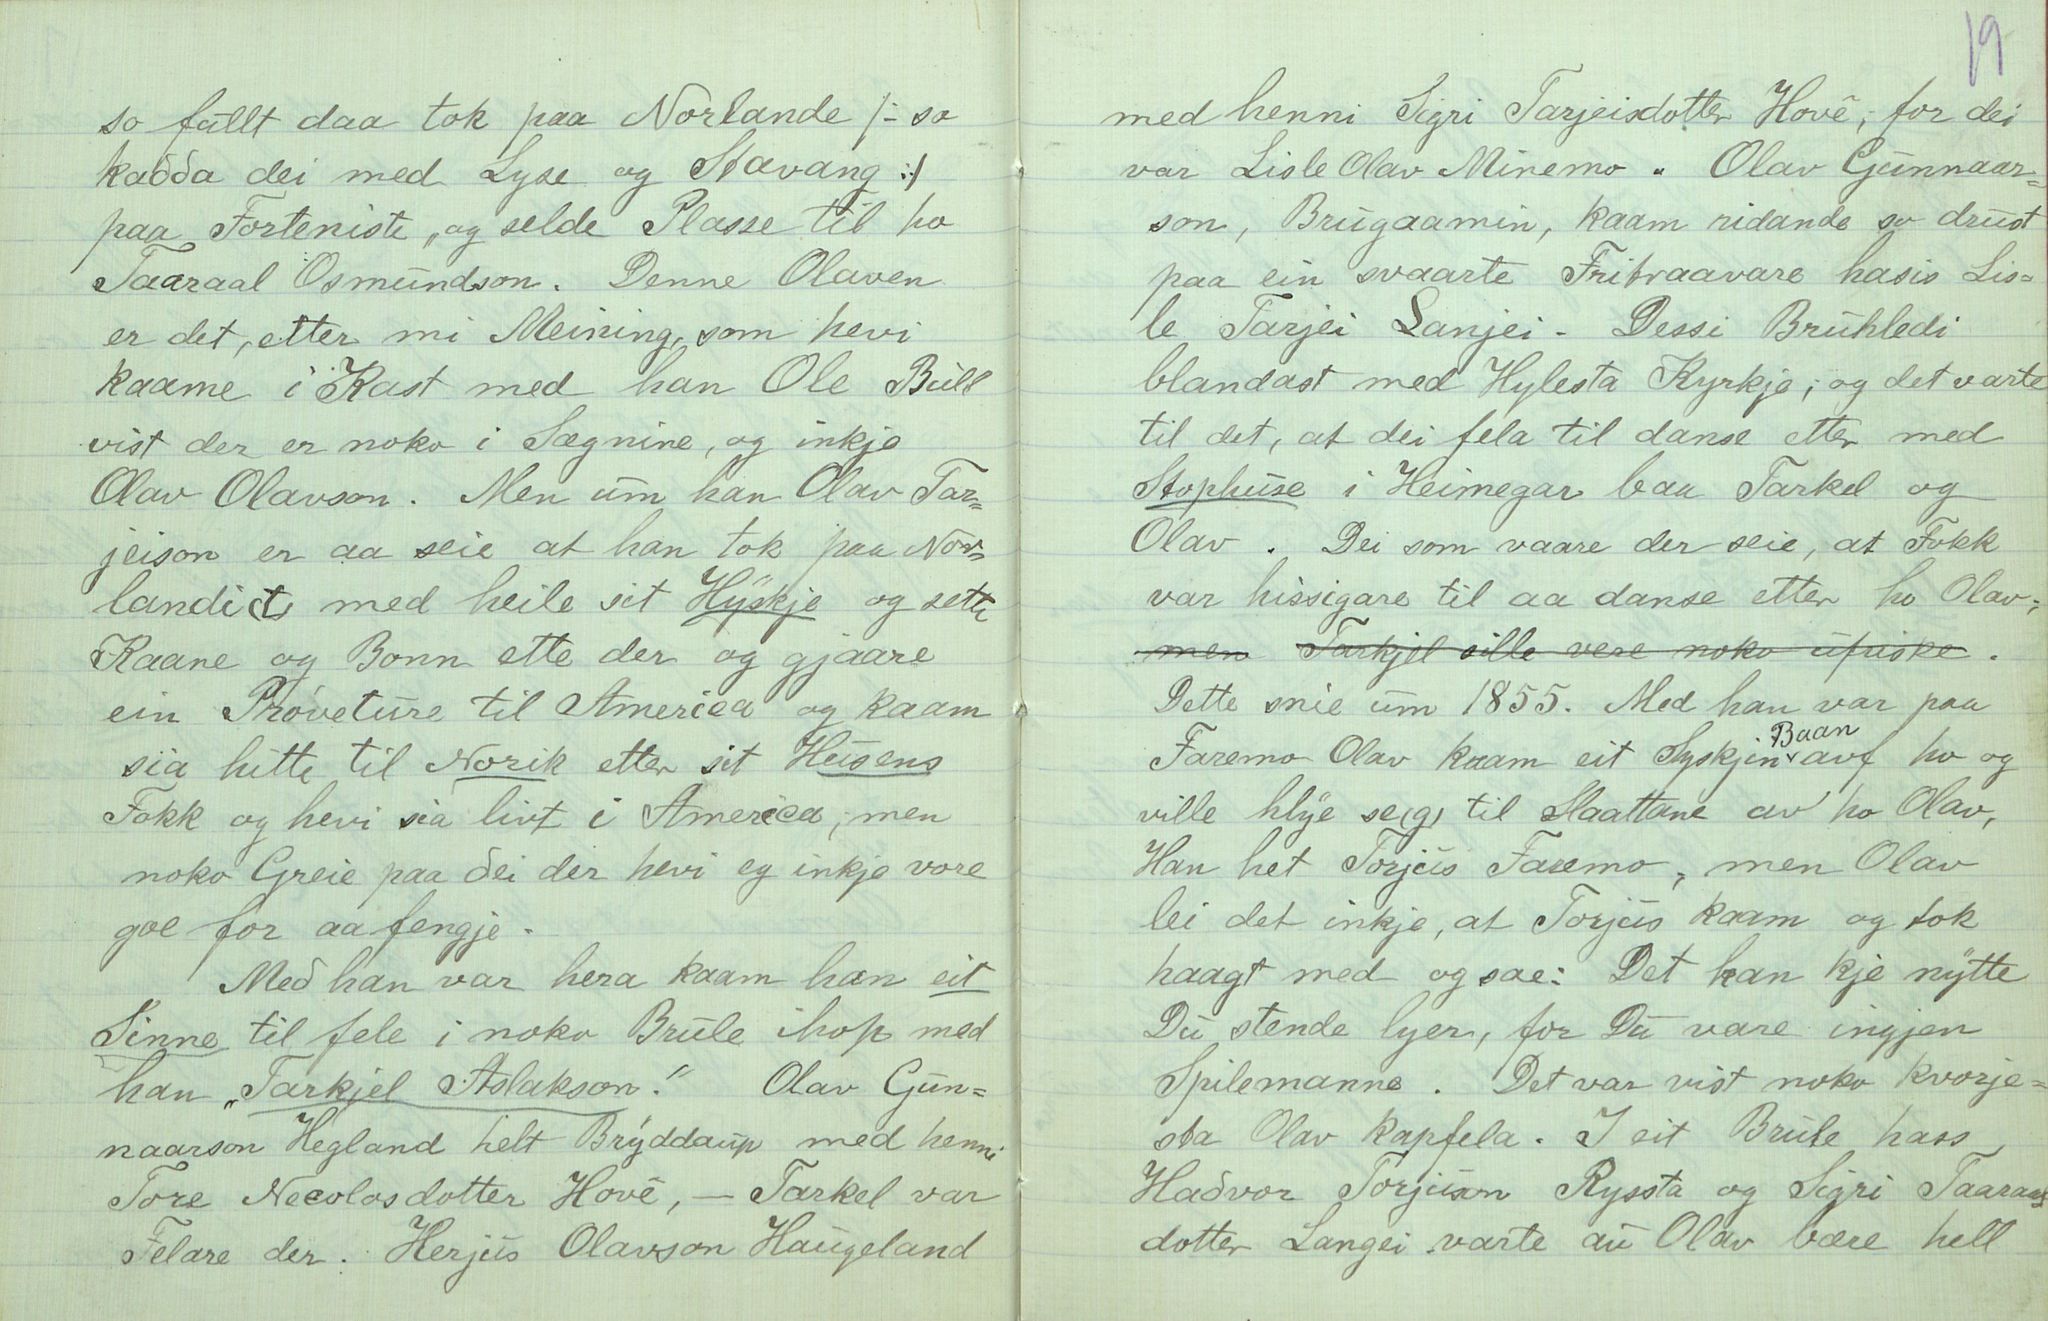 so fullt daa tok paa Norlande /:- so
kadda dei med Lyse og Stavang :/
paa Forteniste, og selde Plasse til ho
Taaraal Osmundson. Denne Olaven
er det, etter mi Meining, som hevi
kaame i Kast med han Ole Bull
vist der er noko i Sægnine, og inkje
Olav Olavson. Men um han Olav Tar=
jeison er aa seie at han tok paa Nor=
landit med heile sit Hyskje og sette
Kaane og Bonn ette der og gjaare
ein Próveture til America og kaam
sia hitte til Norik etter sit Husens
Fokk og hevi sia livt i America, men
noko Greie paa dei der hevi eg inkje vore
goe for aa fengje.
Med han var hera kaam han eit
Sinne til fele i noko Brule ihop med
han „Tarkjel Aslakson." Olav Gun=
naarson Hegland helt Brýddaup med henni
Tore Necolosdotter Hovê, — Tarkel var
Felare der. Herjus Olavson Haugeland
19
med henni Sigri Tarjeisdotter Hovê, for dei
var Lisle Olav Minemo. Olav Gunnaar=
son, Brugaamin, kaam ridande so drust
paa ein svaarte Fribraavare hasis Lis=
le Tarjei Lanjei. Dessi Bruhledi
blandast med Hylesta Kyrkje; og det varte
til det, at dei fela til danse etter med
Stophuse i Heimegar baa Tarkel og
Olav. Dei som vaare der seie, at Fokk
var hissigare til aa danse etter ho Olav;
men Tarkjel sille vere noko ufriske.
Dette snie um 1855. Med han var paa
Faremo Olav kaam eit Syskjin Baan avf ho og
ville hlye se(g) til Slaattane av ho Olav,
Han het Torjus Faremo, men Olav
lei det inkje, at Torjus kaam og tok
haagt med og sae: Det kan kje nýtte
Du stende lyer, for Du vare ingjen
Spilemanne. Det var vist noko kvorje=
sta Olav kapfela. I eit Brule hass
Hadvor Torjuson Ryssta og Sigri Taaraals
dotter Langei varte au Olav bære hell